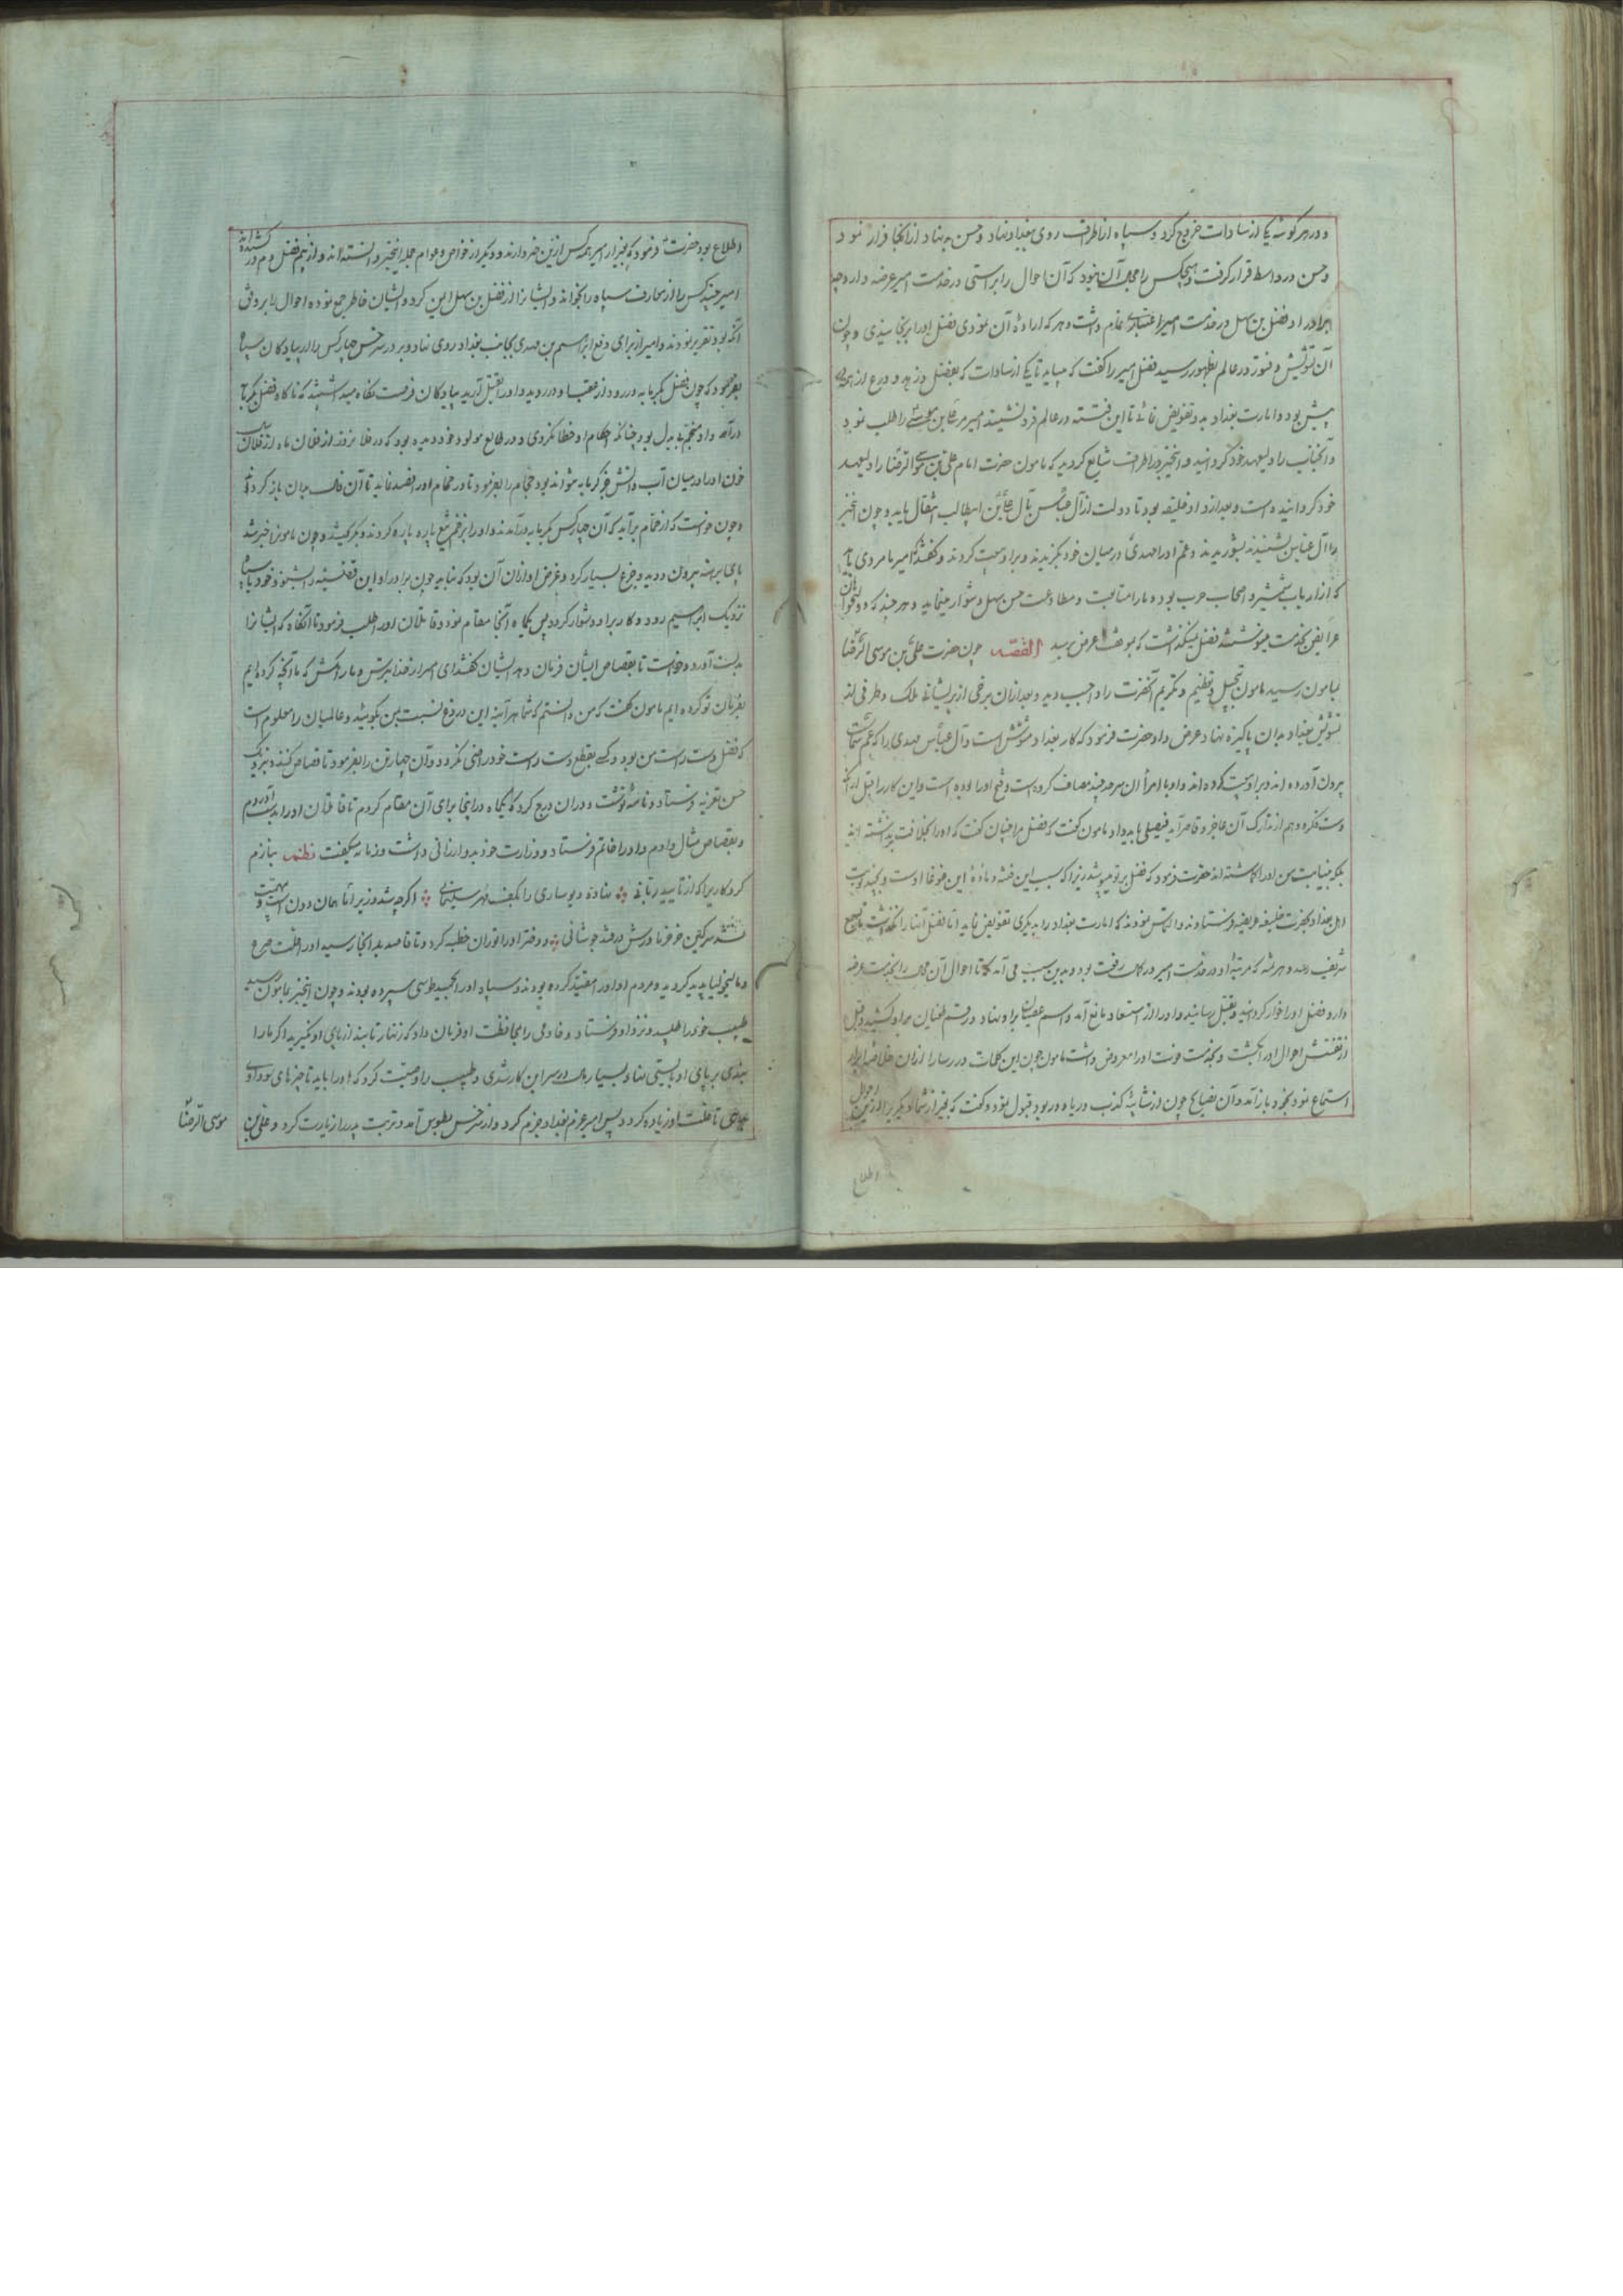 و در هر گوشه یکی از سادات خروج کرد و سپاه از اطراف روی ببغداد نهاد و حسن بن سهل از آنجا فرار نمود
و حسن در واسط قرار گرفت و هیچکس را مجال آن نبود که آن احوال را براستی در خدمت امیر عرضه دارد چه
برادر او فضل بن سهل در خدمت امیر اعتباری عظیم داشت و هر که اراده آن نمودی فضل او را برنجانیدی و چون
آن تشویش و فتور در عالم بظهور رسید فضل امیر را گفت که میباید تا یکی از سادات که بفضل و زهد و ورع از همه
پیش بود و امارت بغداد بدو تفویض نمائی تا این فتنه در عالم فرو نشیند امیر علی بن موسی را طلب نمود
و آنجناب را ولیعهد خود گردانید و این خبر در اطراف شایع گردید که مامون حضرت امام علی بن موسی الرضا را ولیعهد
خود گردانیده است و بعد ازو او خلیفه بود تا دولت از آل عباس بآل علی بن ابیطالب انتقال یابد و چون این خبر
را آل عباس بشنیدند بشوریدند و عم او را مهدی در میان خود بگزیدند و برو بیعت کردند و گفتند امیر ما مردی باید
که از ارباب شمشیر و اصحاب حرب بوده ما را متابعت و مطاوعت حسن سهل دشوار مینماید و هر چند که دولتخواهان
عرایض بخدمت مینوشتند فضل نمیگذاشت که بموقف عرض رسد القصه چون حضرت علی بن موسی الرضا
بمامون رسید مامون تبجیل و تعظیم و تکریم آنحضرت را واجب دید و بعد از آن برخی از پریشانی ملک و طرفی از
تشویش بغداد بدان پاکیزه نهاد عرض داد حضرت فرمود که کار بغداد مشوش است و آل عباس مهدی را که عم شماست
بیرون آورده اند و برو بیعت کرده اند و او با امرا آن سرحد چند مصاف کرده است و فتح او را بوده است و این کار را قبل از آنکه
دست فکر و وهم از تدارک آن عاجز و قاصر آید فیصلی باید داد مامون گفت که فضل مرا چنان گفت که او را بخلافت بر نداشته اند
بلکه بنیابت من او را گماشته اند حضرت فرمود که فضل بر تو میپوشد زیرا که سبب این فتنه و ماده این غوغا اوست و چند نوبت
اهل بغداد بحضرت خلیفه عریضه فرستادند و التماس نمودند که امارت بغداد را بدیگری تفویض نماید اما فضل آنها را نگذاشت تا بسمع
شریف رسد و هر بنده که مرتبه او در خدمت امیر در کمال رفعت بود و بدین سبب می آمد که تا احوال آن محال را بخدمت عرضه
دارد فضل او را خوار گردانید و بقتل رسانید و او را از استعداد مانع آمد و اسم عصیان برو نهاد و رقم طغیان برو کشید و قبل
از تفتیش احوال او را بکشت و بخدمت خونت او را معروض داشت مامون چون این کلمات در رسا را از آن خلاصه ابرار
استماع نمود بخود باز آمد و آن نصایح چون از شائبه کذب و ریا دور بود قبول نمود و گفت که بغیر از شما دیگری را ازین احوال
اطلاع
اطلاع بود حضرت فرمود که بغیر از امیر همه کس ازین خبر دارند و دیگر از خواص و عوام جمله این خبر دانسته اند و از بیم فضل دم در کشیده اند
امیر چند کس را از معارف سپاه را بخواند و ایشان را از فضل بن سهل ایمن کرد و ایشان خاطر جمع نموده احوال را بر وفق
آنکه بود تقریر نمودند و امیر از برای دفع ابراهیم بن مهدی بجانب بغداد روی نهاد و بر در سرخس چهار کس را از پیادگان سپاه
بفرمود که چون فضل بگرمابه در رود از عقب او در روید و او را بقتل آرید پیادگان فرصت نگاه میداشتند که ناگاه فضل بگرمابه
درآمد و او منجم بی بدل بود چنانکه احکام او خطا نکردی و در طالع مولود خود دیده بود که در فلان روز از فلان ماه از فلان سال
خون او در میان آب و آتش در گرمابه شواند بود حجام را بفرمود تا در حمام او را فصد نماید تا آن فال بدان باز گردد
و چون خواست که از حمام برآید که آن چهار کس بگرمابه درآمدند و او را بزخم تیغ پاره پاره کردند و بگریختند و چون مامون را خبر شد
پای برهنه بیرون دوید و جزع بسیار کرد و غرض او از آن آن بود که نباید چون برادر او این قضیه را بشنود و خود با سپاه
نزدیک ابراهیم رود و کار برو دشوار گردد پس یکماه آنجا مقام نمود و قاتلان او را طلب فرمود تا آنگاه که ایشان را
بدست آورد و خواست تا بقصاص ایشان فرمان دهد ایشان گفتند ای امیر از خدا بترس و ما را مکش که ما آنچه کرده ایم
بفرمان تو کرده ایم مامون گفت که من دانستم که شما هر آینه این دروغ نسبت بمن بگوئید و عالمیان را معلوم است
که فضل دست راست من بود و کسی بقطع دست راست خود راضی نگردد و آن چهار تن را بفرمود تا قصاص کنند و بنزدیک
حسن تعزیه فرستاد و نامه نوشت و در آن درج کرد که یکماه در اینجا برای آن مقام کردم تا قاتلان او را بدست آوردم
و بقصاص مثال دادم و او را خاتم فرستاد و وزارت خود بدو ارزانی داشت و زمانه میگفت نظم بنازم
کردکاریرا که از تایید ربانی ❖ نهاده دیو ساری را بکف مهر سلیمانی ❖ اگر چه شد وزیر اما همان دون است و
نشد سرگین خر خرما ورش در قند جوشانی ❖ و دختر او را توران خطبه کرد و تا قاصد بد آنجا رسید او را علت صرع
و مالیخولیا پدید گردید و مردم او او را مقید کرده بودند و سپاه او را بحمید طوسی سپرده بودند و چون این خبر بمامون رسید
طبیب خود را طلبید و نزد او فرستاد و خادمی را بمحافظت او فرمان داد که زنهار تا بند از پای او نگیرید اگر ما را
بندی بر پای او بایستی نهاد بسیار مال در سر این کار شدی و طبیب را وصیت کرد که او را باید تا چیزهای سوداوی
دهی تا علت او زیاده گردد پس امیر عزم بغداد جزم کرد و از سرخس بطوس آمد و تربت پدر را زیارت کرد و علی بن موسی الرضا